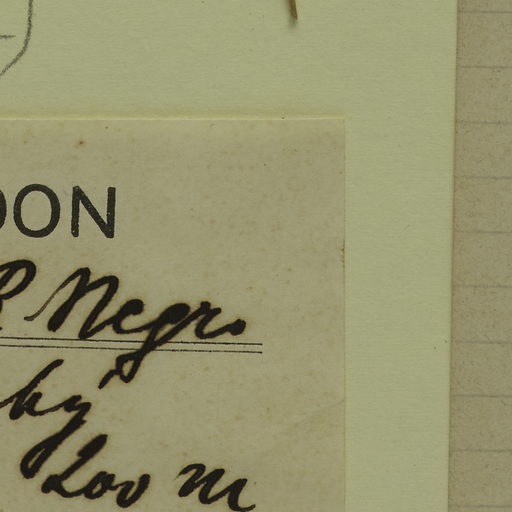 DON
R Negro
by
200 m